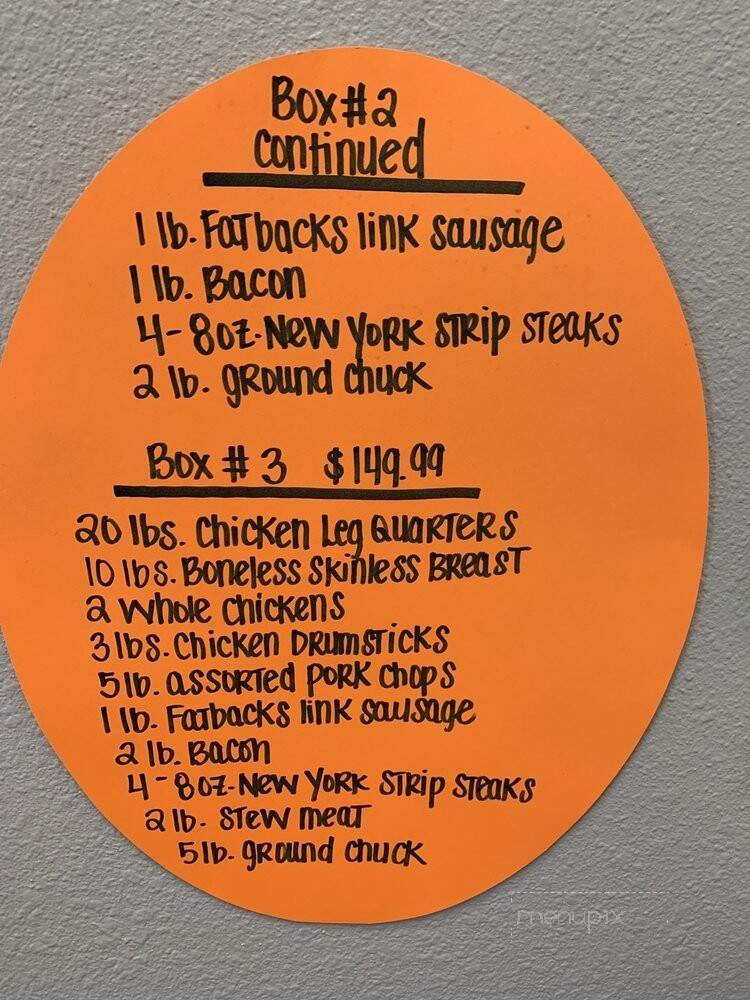 Box #2
continued
1 lb. Fatbacks link sausage
1 lb. Bacon
4-8oz. New York Strip Steaks
2 lb. ground chuck
Box #3 $149.99
20 lbs. Chicken Leg Quarters
10 lbs. Boneless Skinless Breast
2 Whole Chickens
3 lbs. Chicken Drumsticks
5 lb. assorted pork chops
1 lb. Fatbacks link sausage
2 lb. Bacon
4-8oz. New York Strip Steaks
2 lb. Stew meat
5 lb. ground chuck
menupix